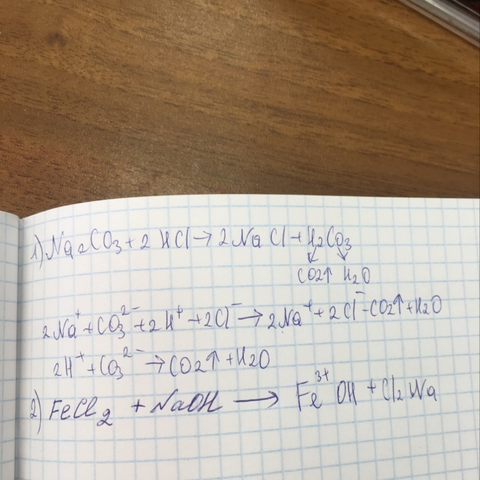 1) Na2CO3 + 2HCl → 2NaCl + H2CO3
CO2↑ H2O
2Na⁺ + CO3²⁻ + 2H⁺ + 2Cl⁻ → 2Na⁺ + 2Cl⁻ - CO2↑ + H2O
2H⁺ + CO3²⁻ → CO2↑ + H2O
2) FeCl2 + NaOH → Fe³⁺OH + Cl2Na